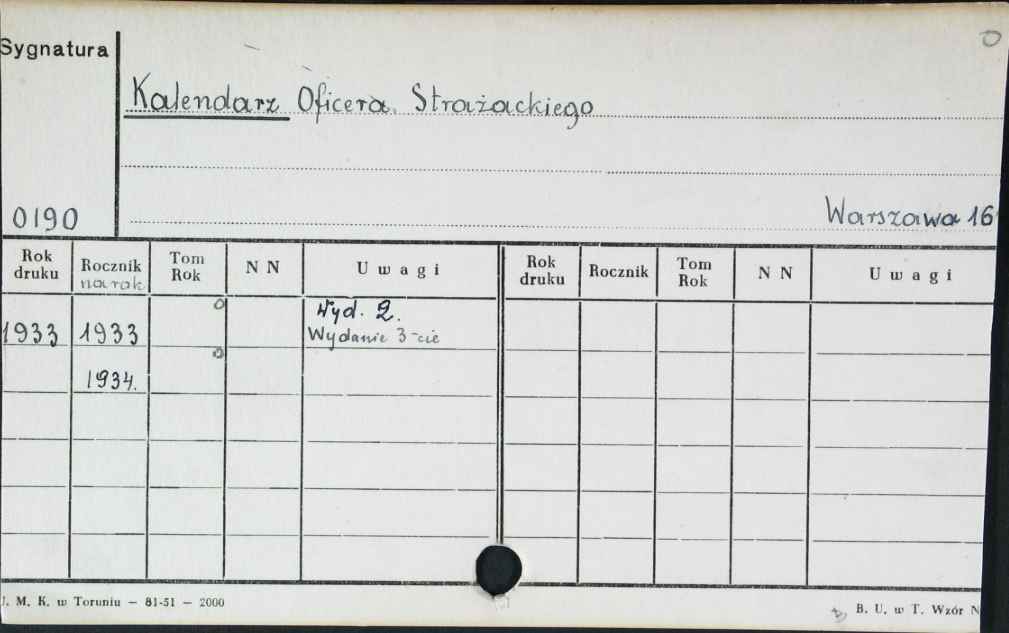 Sygnatura
Kalendarz Oficera Strażackiego
0190
Warszawa 16
Rok druku Rocznik na rok Tom Rok N N Uwagi Rok druku Rocznik Tom Rok N N Uwagi
Wyd. 2.
1933 1933 Wydanie 3-cie
1934.
U. M. K. w Toruniu — 81-51 — 2000
B. U. w T. Wzór N